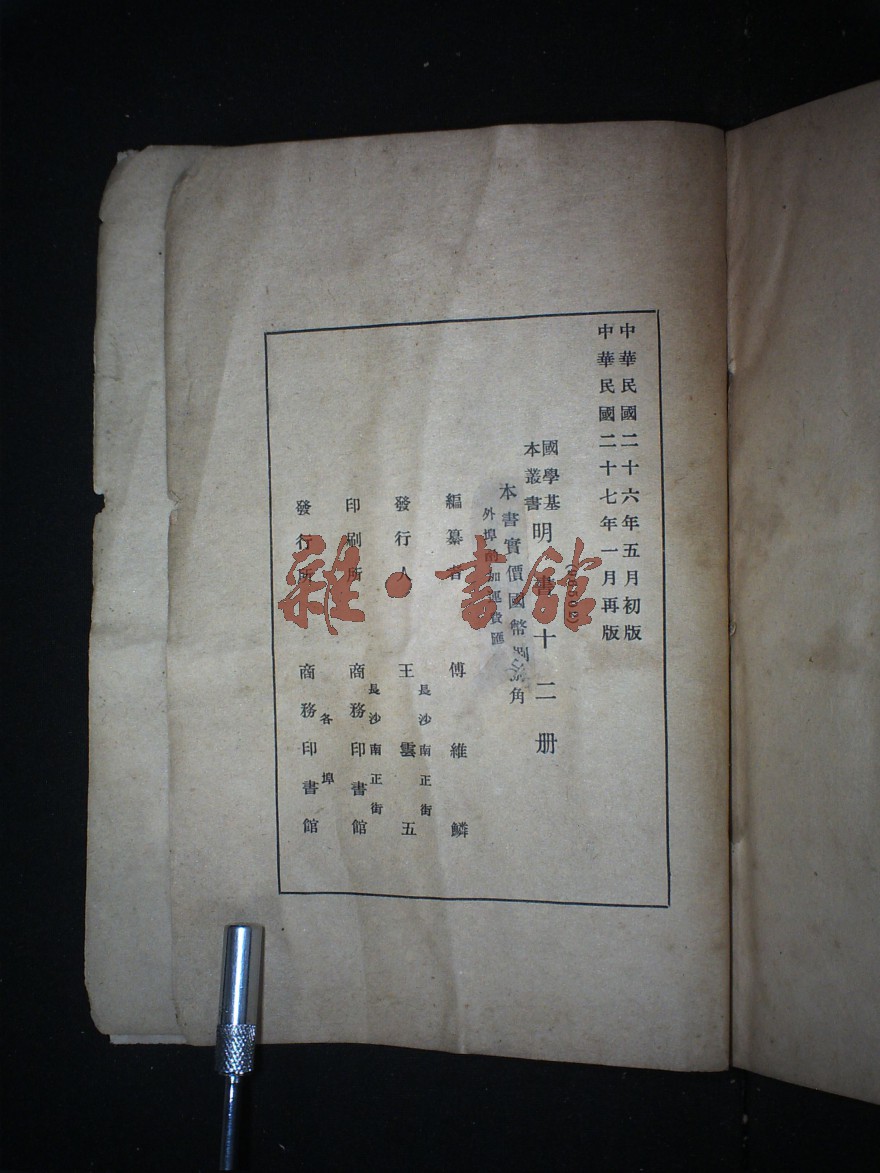 中華民國二十六年五月初版
中華民國二十七年一月再版
國學基
本叢書
明書十二册
本書實價國幣
角
外埠
加運費匯
編纂者 傅維鱗
發行人 王雲五
長沙南正街
印刷所 商務印書館
長沙南正街
發行所 商務印書館
各埠
雜·書館